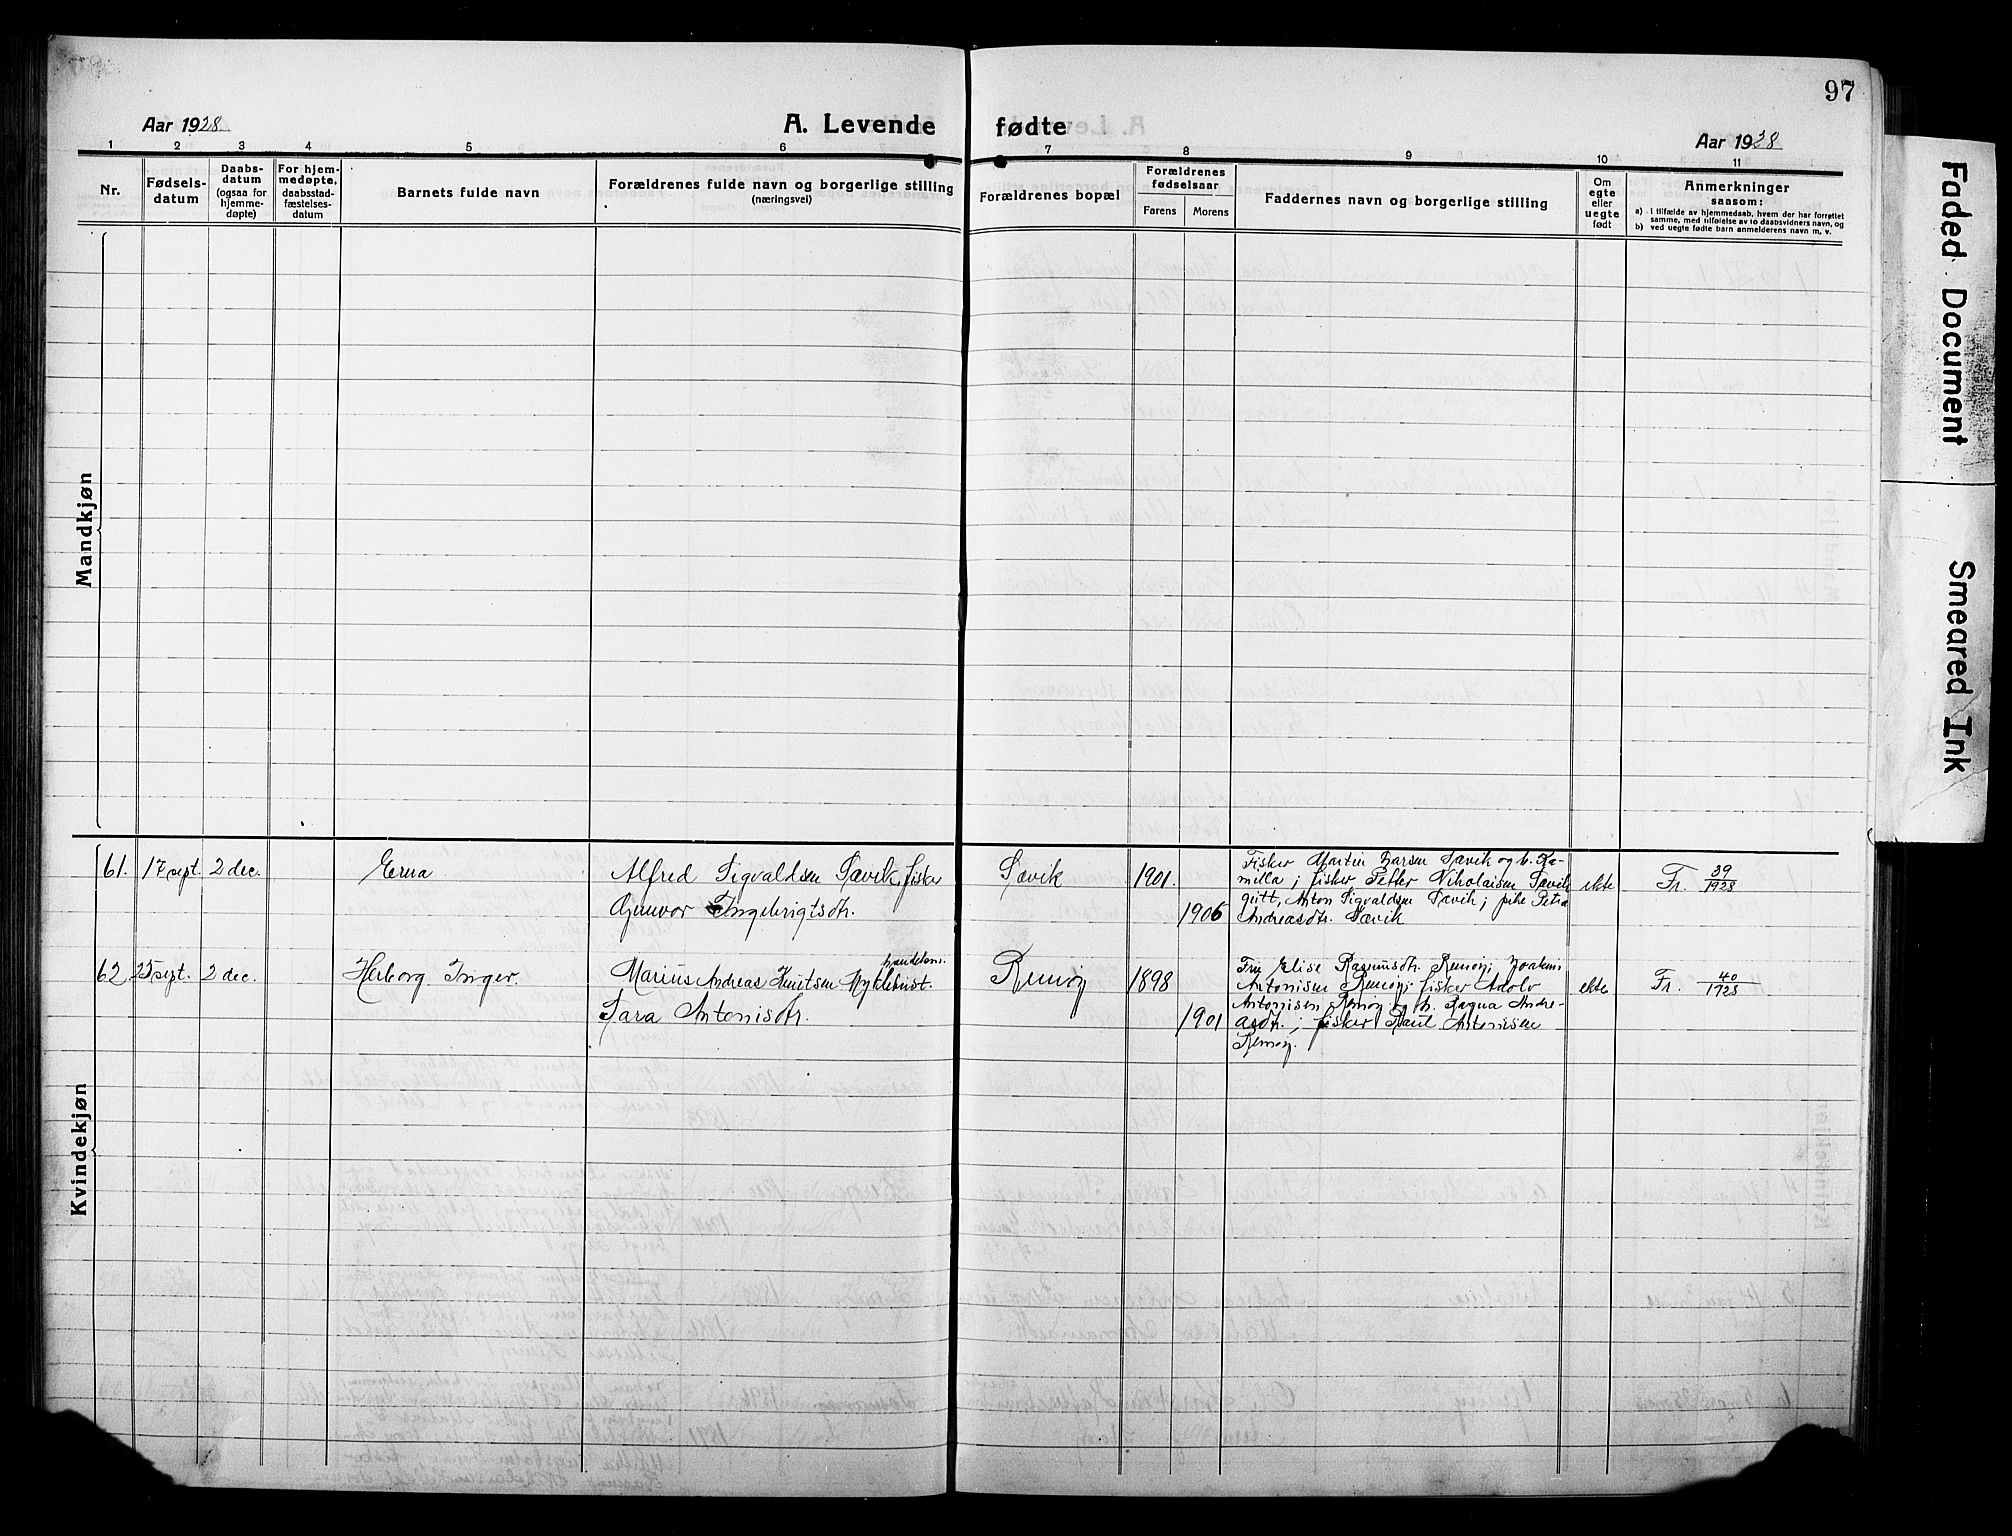 97
Aar 1928.
A. Levende fødte
Aar 1928
1 2 3 4 5 6 7 8 9 10 11
Nr.
Fødsels-
datum
Daabs-
datum
(ogsaa for
hjemme-
døpte)
For hjem-
medøpte,
daabsstad-
fæstelses-
datum
Barnets fulde navn
Forældrenes fulde navn og borgerlige stilling
(næringsvei)
Forældrenes bopæl
Forældrenes
fødselsaar
Farens
Morens
Faddernes navn og borgerlige stilling
Om
egte
eller
uegte
født
Anmerkninger
saasom:
a) i tilfælde av hjemmedaab, hvem der har forrettet
samme, med tilføielse av to daabsvidners navn, og
b) ved uegte fødte barn anmelderens navn m. v.
Mandkjøn
Kvindekjøn
61. 17 sept. 2 dec. Erna Alfred Sigvaldsen Sævik, fisker Sævik 1901. ekte Fr. 39/1928
Gunvor Ingebrigtsdtr. 1906
Fisker Martin Larsen Sævik og h. Ka-
milla; fisker Petter Nikolaisen Sævik
gutt, Anton Sigvaldsen Sævik; pike Petra
Andreasdtr. Sævik
62 25 sept. 2 dec. Herborg Inger. Marius Andreas Knutsen Myklebust. handelsm. Remøy 1898 ekte Fr. 40/1928
Sara Antonisdtr. 1901
Fru Elise Rasmusdtr. Remøy; Joakim
Antonisen Remøy; fisker Adolv
Antonisen Remøy og h. Ragna Andre-
asdtr.; fisker Paul Antonisen
Remøy.
Faded Document
Smeared Ink